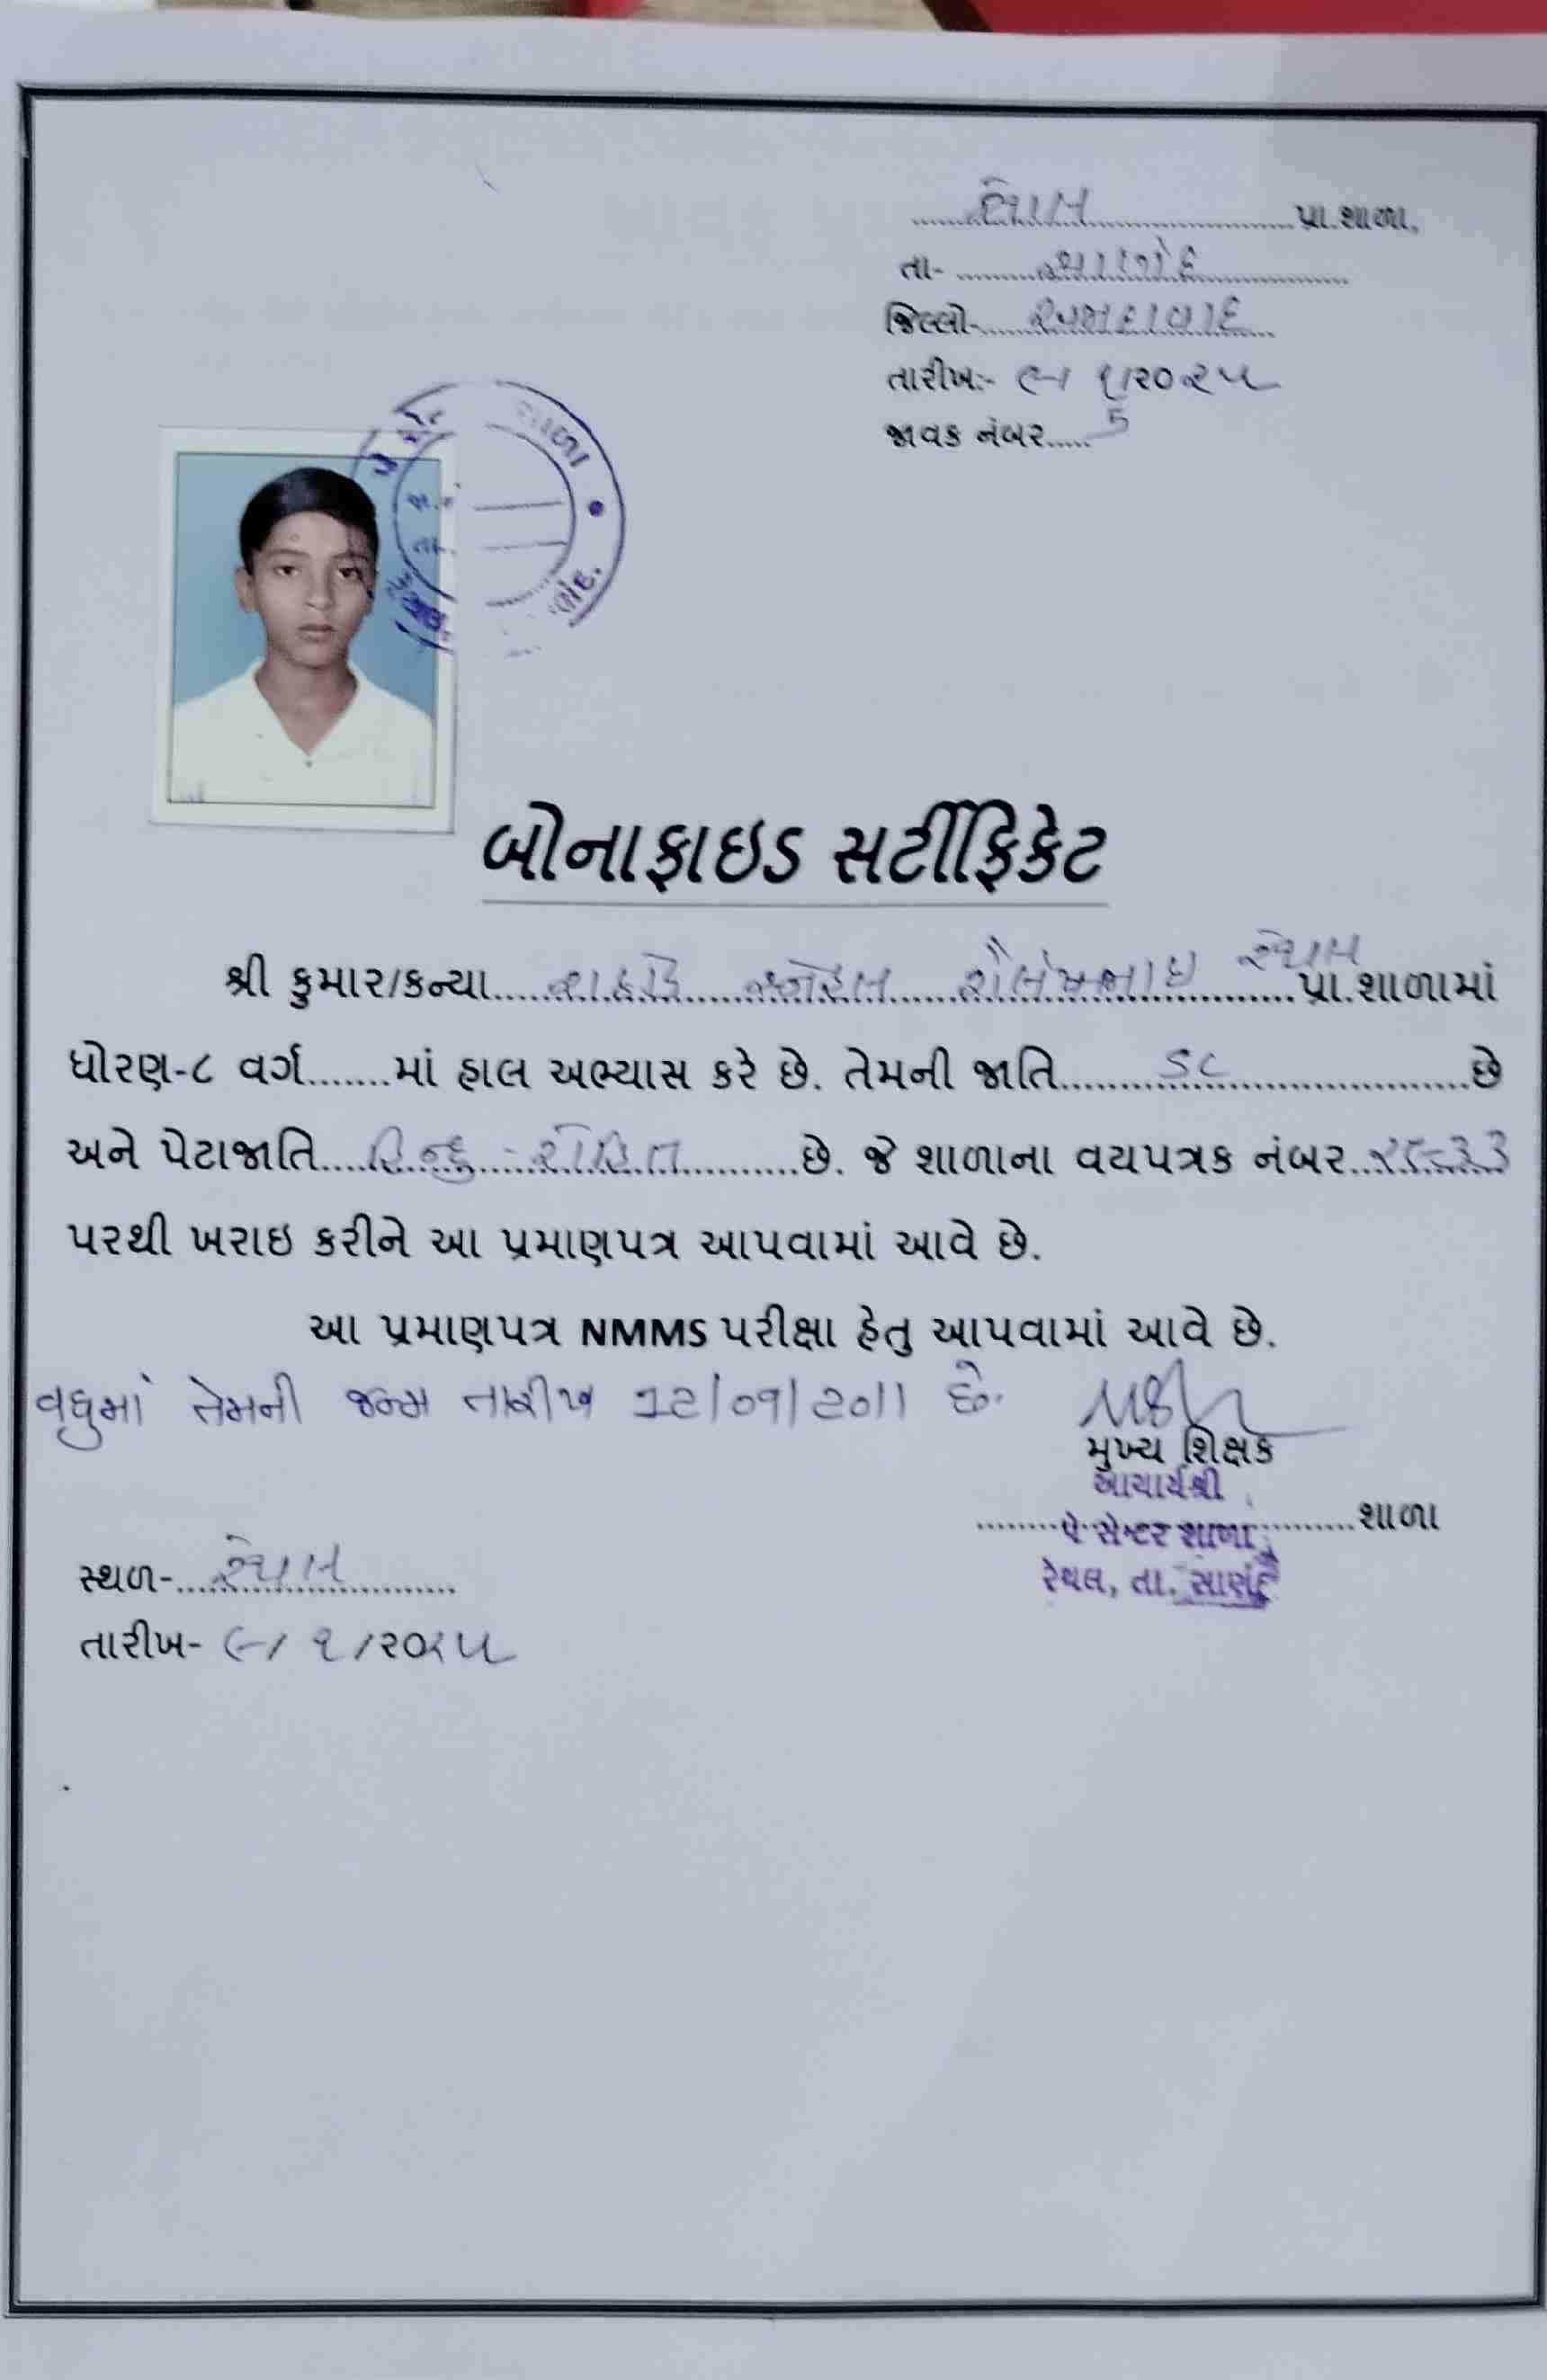 રેથલ પ્રા.શાળા,
તા- સાણંદ
જિલ્લો- અમદાવાદ
તારીખ:- ૯/ ૧/૨૦૨૫
જાવક નંબર..... 5
શાળા
બોનાફાઇડ સર્ટીફિકેટ
શ્રી કુમાર/કન્યા..... રાઠોડ સ્નેહલ શૈલેષભાઇ રેથલ પ્રા.શાળામાં
ધોરણ-૮ વર્ગ.......માં હાલ અભ્યાસ કરે છે. તેમની જાતિ..... SC .....છે
અને પેટાજાતિ.... હિન્દુ - રોહિત .....છે. જે શાળાના વયપત્રક નંબર..
પરથી ખરાઇ કરીને આ પ્રમાણપત્ર આપવામાં આવે છે.
આ પ્રમાણપત્ર NMMS પરીક્ષા હેતુ આપવામાં આવે છે.
વધુમાં તેમની જન્મ તારીખ 12/09/2011 છે.
મુખ્ય શિક્ષક
આચાર્યશ્રી
પે સેન્ટર શાળા ..........શાળા
રેથલ, તા. સાણંદ
સ્થળ- રેથલ
તારીખ- ૯/ ૧ /૨૦૨૫